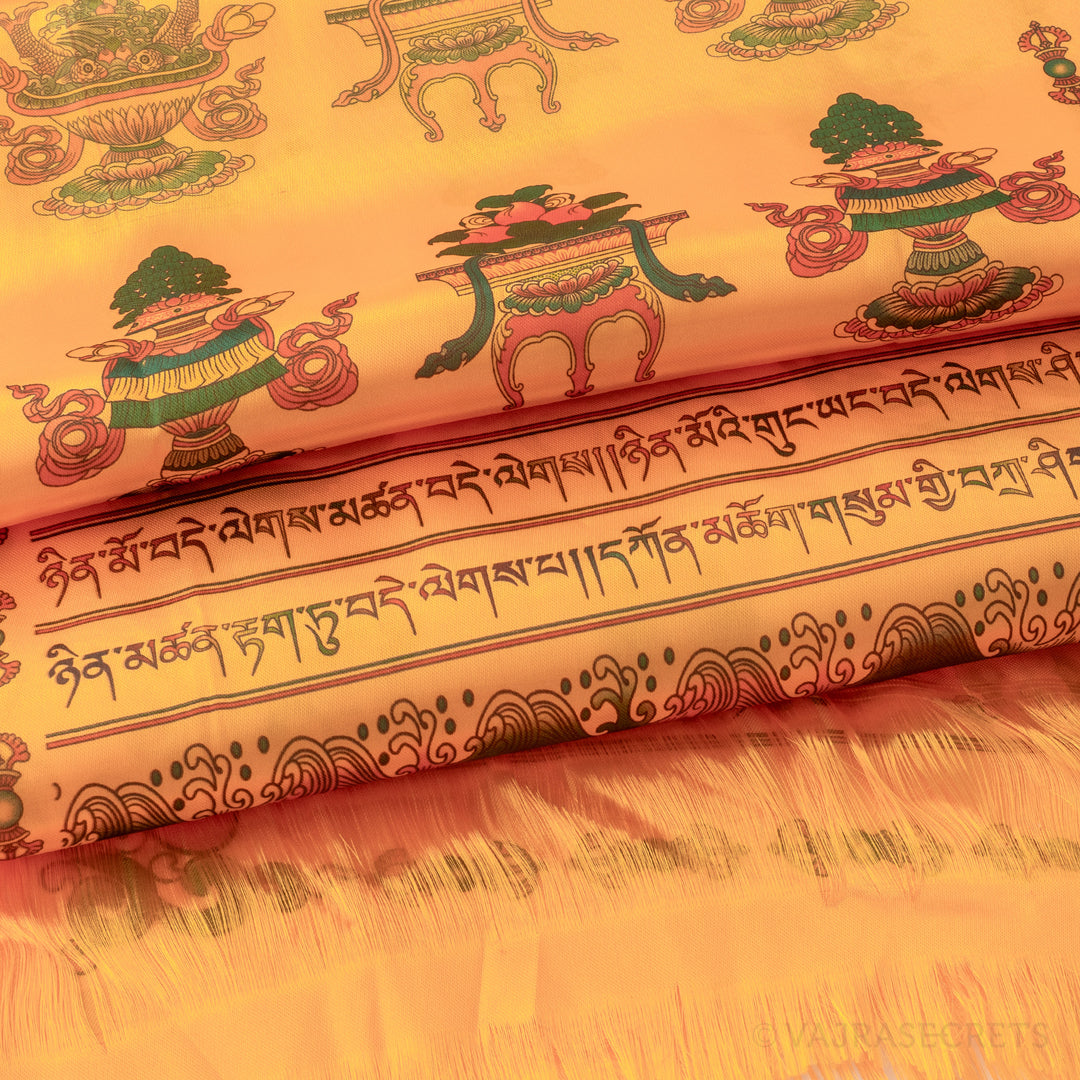 ཉིན་མོ་བདེ་ལེགས་མཚན་བདེ་ལེགས།།ཉིན་མོའི་གུང་ཡང་བདེ་ལེགས་ཤི
ཉིན་མཚན་རྟག་ཏུ་བདེ་ལེགས་པ།།དཀོན་མཆོག་གསུམ་གྱི་བཀྲ་ཤི
© VAJRASECRETS